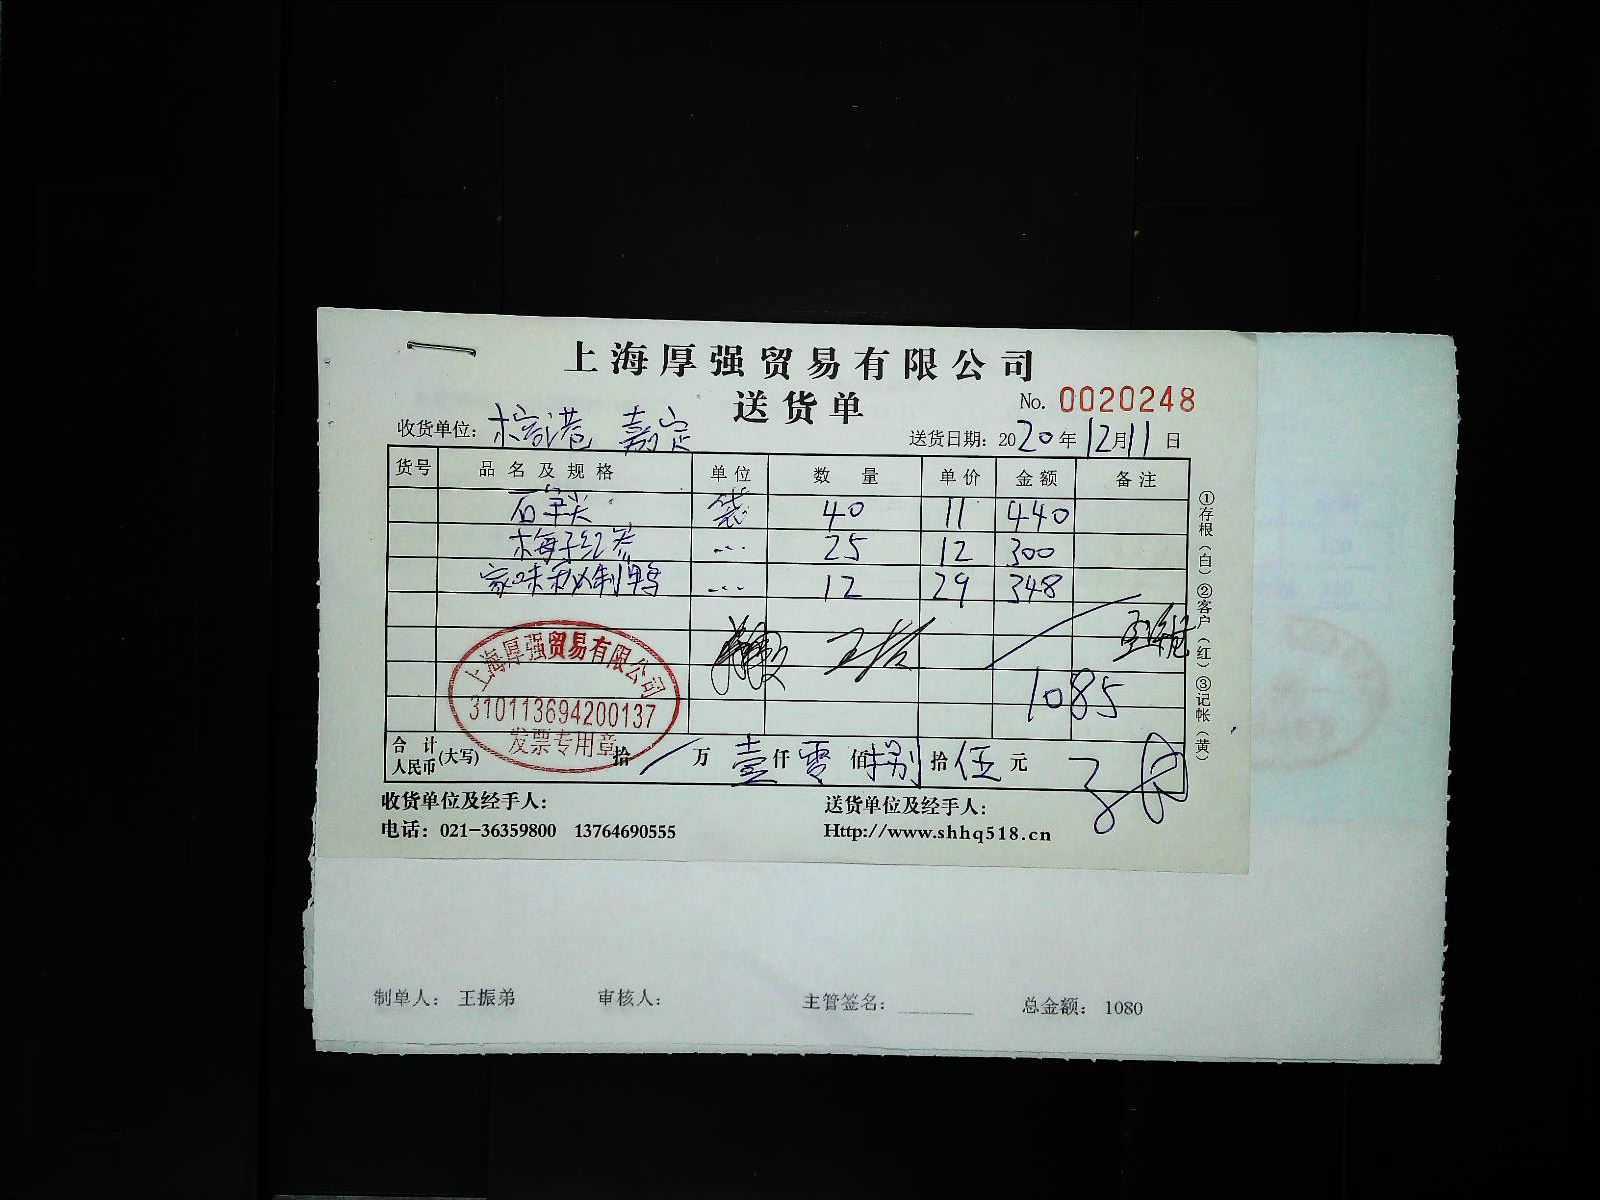 上海厚强贸易有限公司
送货单
No. 0020248
收货单位: 嘉定
送货日期: 2020年12月11日
货号 品名及规格 单位 数量 单价 金额 备注
袋 40 11 440
梅子红茶 ... 25 12 300
家味秘制鸭 ... 12 29 348
1085
上海厚强贸易有限公司
310113694200137
发票专用章
合计人民币(大写) 拾 / 万 壹 仟 零 佰 捌 拾 伍 元
①存根(白)②客户(红)③记帐(黄)
收货单位及经手人: 送货单位及经手人:
电话: 021-36359800 13764690555 Http://www.shhq518.cn
制单人: 王振弟 审核人: 主管签名: ________ 总金额: 1080